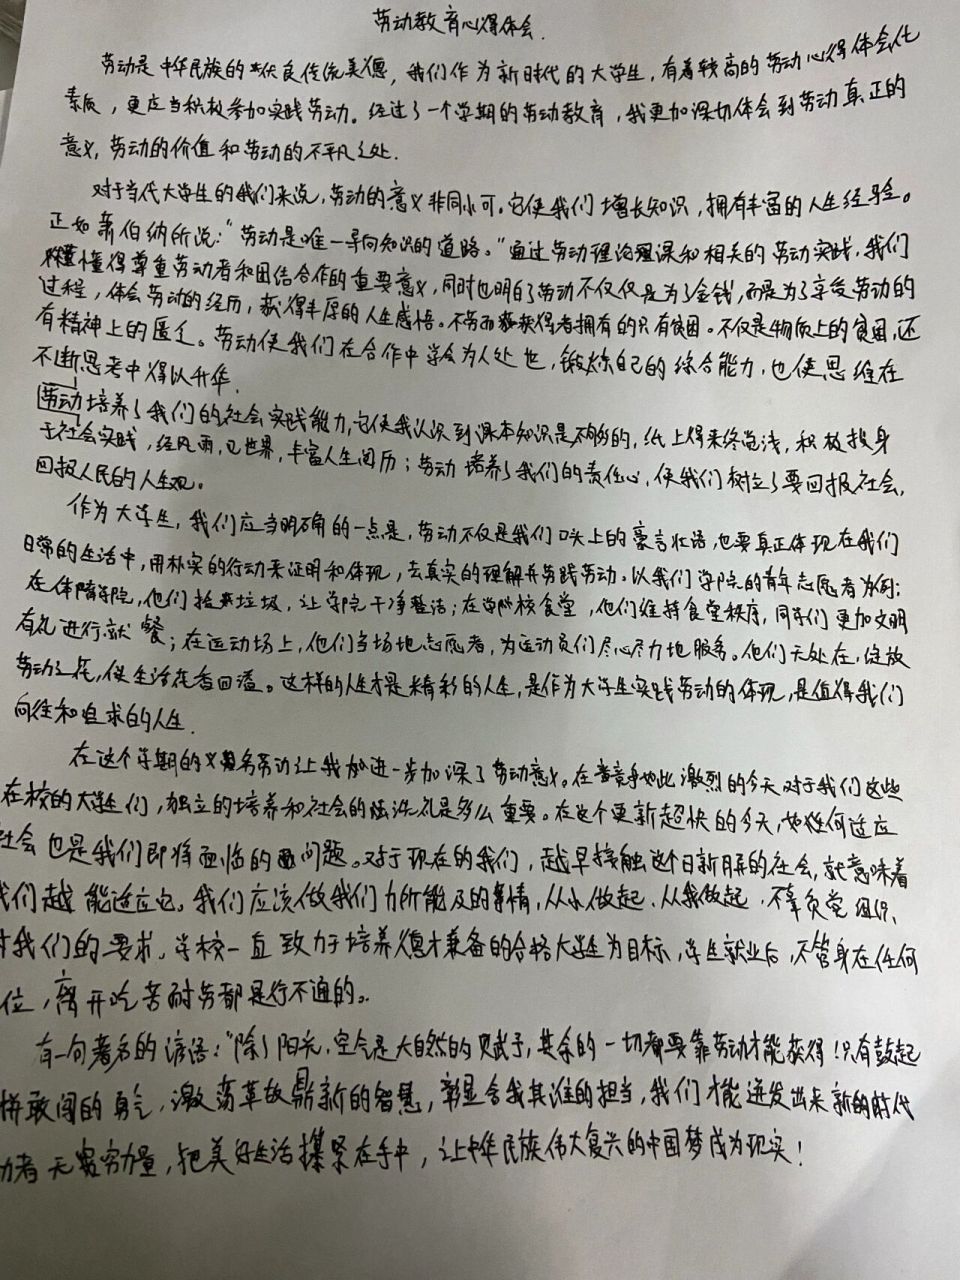 劳动教育心得体会.
劳动是中华民族的优良传统美德，我们作为新时代的大学生，有着较高的劳动心得体会化
素质，更应当积极参加实践劳动。经过了一个学期的劳动教育，我更加深切体会到劳动真正的
意义，劳动的价值和劳动的不平凡之处.
对于当代大学生的我们来说，劳动的意义非同小可。它使我们增长知识，拥有丰富的人生经验。
正如萧伯纳所说："劳动是唯一导向知识的道路。"通过劳动理论课和相关的劳动实践，我们
懂得尊重劳动者和团结合作的重要意义，同时也明白了劳动不仅仅是为了金钱，而是为了享受劳动的
过程，体会劳动的经历，获得丰厚的人生感悟。不劳而获者拥有的只有贫困。不仅是物质上的贫困，还
有精神上的匮乏。劳动使我们在合作中学会为人处世，锻炼自己的综合能力，也使思维在
不断思考中得以升华.
劳动培养了我们的社会实践能力，它使我认识到课本知识是不够的，纸上得来终觉浅，积极投身
于社会实践，经风雨，见世界，丰富人生阅历；劳动培养了我们的责任心，使我们树立了要回报社会，
回报人民的人生观。
作为大学生，我们应当明确的一点是，劳动不仅是我们口头上的豪言壮语，也要真正体现在我们
日常的生活中，用朴实的行动来证明和体现，去真实的理解并实践劳动。以我们学院的青年志愿者为例：
在体育学院，他们捡垃圾，让学院干净整洁；在学校食堂，他们维持食堂秩序，同学们更加文明
有礼进行就餐；在运动场上，他们当场地志愿者，为运动员们尽心尽力地服务。他们无处在，绽放
劳动之花，使生活花香四溢。这样的人生才是精彩的人生，是作为大学生实践劳动的体现，是值得我们
向往和追求的人生.
在这个学期的义务劳动让我加进一步加深了劳动意义。在竞争如此激烈的今天对于我们这些
在校的大学生们，独立的培养和社会的洗礼是多么重要。在这个更新超快的今天，如何适应
社会也是我们即将面临的问题。对于现在的我们，越早接触这个日新月异的社会，就意味着
我们越能适应它。我们应该做我们力所能及的事情，从小做起、从我做起，不辜负党组织、
对我们的要求。学校一直致力于培养德才兼备的合格大学生为目标，学生就业后，不管身在任何
位，离开吃苦耐劳都是行不通的。
有一句著名的谚语："除了阳光，空气是大自然的赋予，其余的一切都要靠劳动才能获得！只有鼓起
拼敢闯的勇气，激荡革故鼎新的智慧，彰显舍我其谁的担当，我们才能迸发出来新的时代
动者无穷力量，把美好生活攥紧在手中，让中华民族伟大复兴的中国梦成为现实！